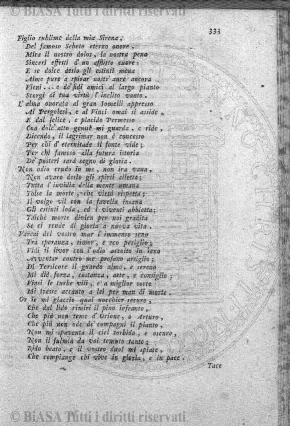 © BiASA Tutti i diritti riservati
333
Figlio sublime della mia Sirena,
Del famoso Sebeto eterno onore,
Mira il nostro dolor, la nostra pena
Sinceri effetti d'un afflitto cuore:
E se dolce desio gli estinti mena
Almo pure a spirar nostr'aure ancora
Vieni... e de' fidi amici al largo pianto
Scorgi di tua virtù l'inclito vanto.
L'alma onorata al gran Jomelli appresso
Al Pergolesi, e al Vinci omai si asside,
E dal felice, e placido Permesso
Con dolc'atto gentil mi guarda, e ride,
Dicendo, il lagrimar non è concesso
Per chi d'eternitade il fonte vide;
Per chi famoso alla futura istoria
De' posteri sarà segno di gloria.
Non odio crudo in me, non ira vana,
Non avaro desio gli spirti alletta;
Tutta l'invidia della mente umana
Tolse la morte, che virtù rispetta;
Il volgo vil con la favella insana
Gli estinti loda, ed i viventi abbietta;
Talchè morte dinien per noi gradita
Se ci rende di gloria a nuova vita.
Varcai del vostro mar l'immenso seno
Tra speranza, timor, e reo periglio;
Vidi il livor con l'odio accolto in seno
Avventar contro me profano artiglio;
Di Tersicore il guardo almo, e sereno
Mi diè forza, costanza, arte, e consiglio;
Finsi le turbe vili, e a miglior sorte
Mi trasse accanto a lei per man di morte.
Or se mi giaccio qual nocchier securo,
Che dal lido rimiri il pino infranto,
Che più non teme d'Orione, o Arturo,
Che più non ode di compagni il pianto,
Non mi spaventa il ciel torbido, e oscuro,
Non il fulmin da voi temuto tanto;
Rido beato, e il vostro duol mi spiace,
Che compiange chi vive in gloria, e in pace.
Tace
© BiASA Tutti i diritti riservati